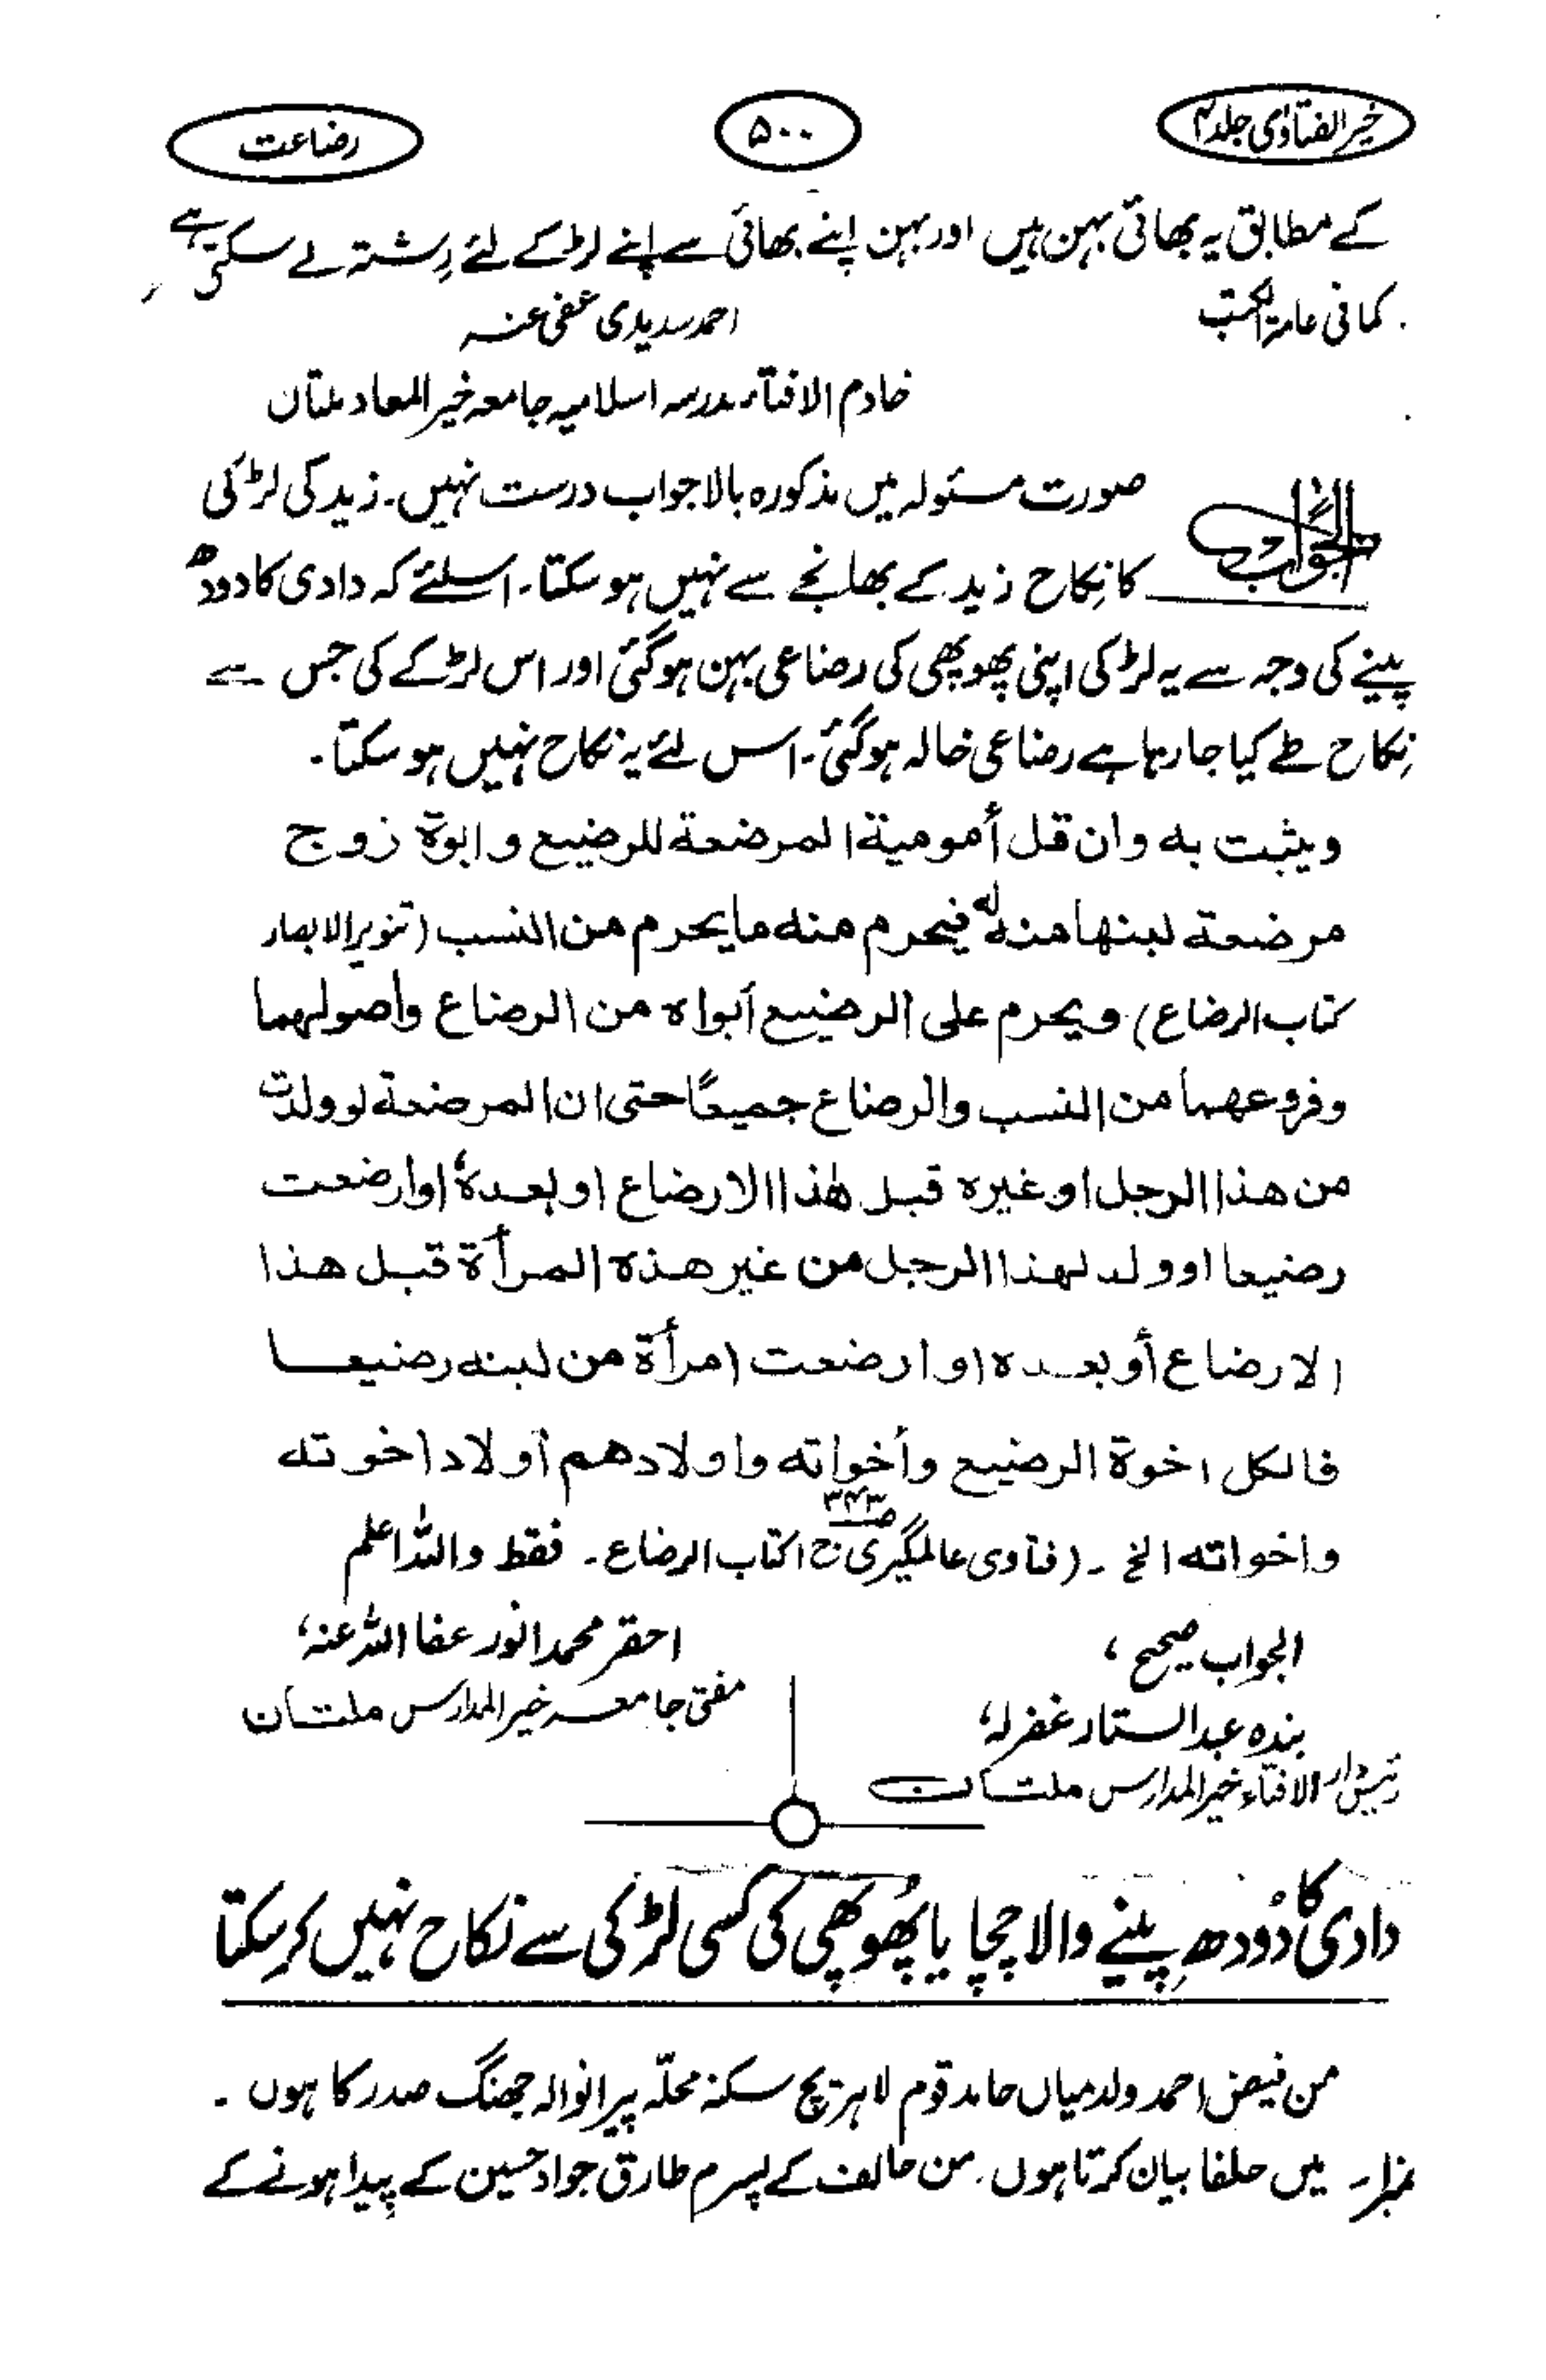 خیر الفتاوٰی جلد ۴
۵۰۰
رضاعت
کے مطابق یہ بھائی بہن ہیں اور بہن اپنے بھائی سے اپنے لڑکے لئے رِشتہ لے سکتی ہے
کما فی عامۃ الکتب
احمد سدیدی عفی عنہ
خادم الافتاء مدرسہ اسلامیہ جامعہ خیر المعاد ملتان
الجواب
صورت مسئولہ میں مذکورہ بالا جواب درست نہیں۔ زید کی لڑکی
کا نِکاح زید کے بھانجے سے نہیں ہو سکتا۔ اسلئے کہ دادی کا دودھ
پینے کی وجہ سے یہ لڑکی اپنی پھوپھی کی رضاعی بہن ہوگئی اور اس لڑکے کی جس سے
نِکاح طے کیا جا رہا ہے رضاعی خالہ ہوگئی۔ اس لئے یہ نکاح نہیں ہو سکتا۔
ویثبت به وان قل أمومیة المرضعة للرضیع و ابوة زوج
مرضعة لبنها منه له فیحرم منه ما یحرم من النسب (تنویر الابصار
کتاب الرضاع) ویحرم علی الرضیع أبواه من الرضاع وأصولهما
وفروعهما من النسب والرضاع جمیعًا حتی ان المرضعة لو ولدت
من هذا الرجل او غیره قبل هٰذا الارضاع او بعدهٗ او ارضعت
رضیعا او ولد لهذا الرجل من غیر هذه المرأة قبل هذا
الارضاع أو بعده او ارضعت امرأة من لبنه رضیعا
فالکل اخوة الرضیع وأخواته واولادهم أولاد اخوته
واخواته الخ ۔ (فتاوی عالمگیری ج ۱ ص۳۴۳ کتاب الرضاع۔ فقط واللہ اعلم
احقر محمد انور عفا اللہ عنہ،
مفتی جامعہ خیر المدارس ملتان
الجواب صحیح،
بندہ عبدالستار غفرلہ،
رئیس دار الافتاء خیر المدارس ملتان
دادی کا دُودھ پینے والا چچا یا پھُوپھی کی کسی لڑکی سے نکاح نہیں کر سکتا
من فیض احمد ولد میاں حامد قوم سکنہ محلّہ پیرانوالہ جھنگ صدر کا ہوں ۔
نمبر۱۔ میں حلفا بیان کرتا ہوں۔ من حالف کے پسرم طارق جواد حسین کے پیدا ہونے کے